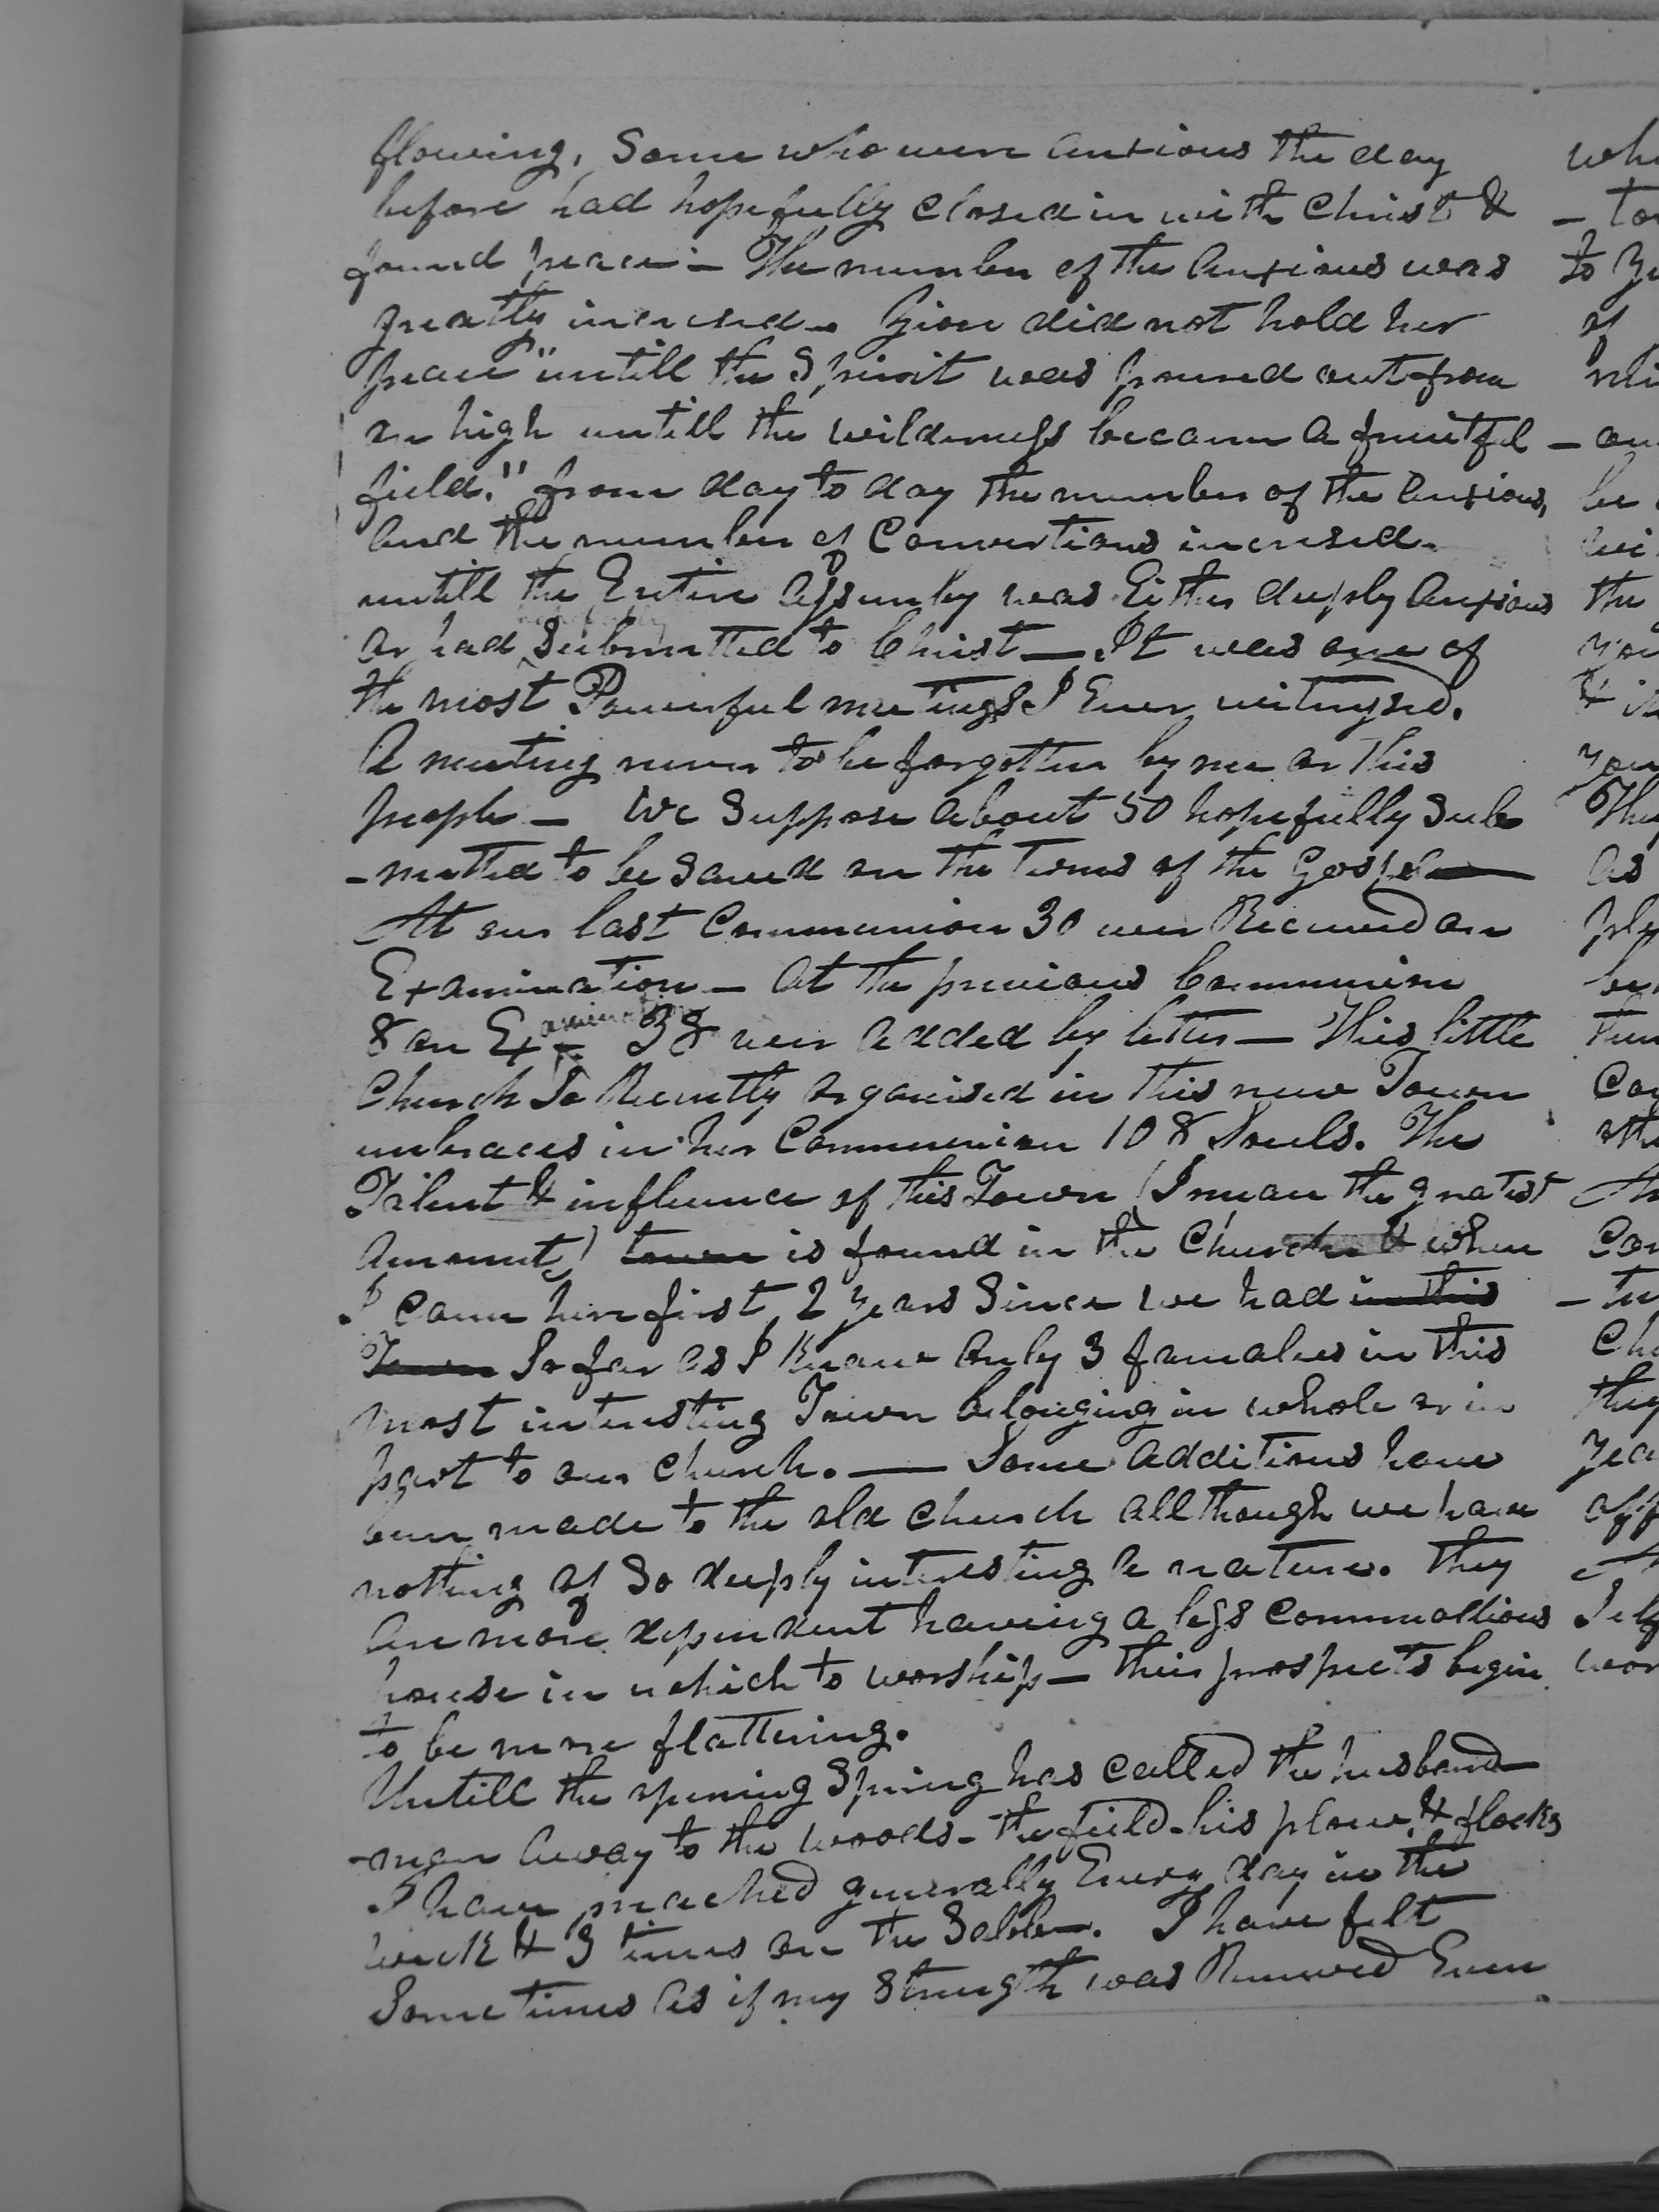 flowing, Some who were anxious the day
before had hopefully closed in with Christ &
found peace - The number of the anxious was
greatly incresed - Zion did not hold her
peace "untill the Spirit was poured out from
on high untill the wilderness became a fruitful
field." from day to day the number of the anxious,
and the number of Convertions incresed.
untill the Entire assemby was Either deeply anxious
or had submitted to Christ — It was one of
the most Powerful meetings I Ever witnessed.
A meeting never to be forgotten by me or this
people — We Suppose about 50 hopefully Sub
-mitted to be Saved on the terms of the Gospel —
At our last Communion 30 were Received on
Examination — at the previous Communion
8 on Examination 38 were added by letter — This little
Church So Recently organised in this new Town
embraces in her Communion 108 Souls. The
Talent & influence of this Town (I mean the greatest
amount) town is found in the Church & when
I came here first, 2 years Since we had in this
Town So far as I Know only 3 famalies in this
most intersting Town belonging in whole or in
part to our Church. — Some additions have
been made to the old Church allthough we have
nothing of So deeply interesting a nature. They
are more dependent having a less commodious
house in which to worship — their prospects begin
to be more flattering.
Untill the opening Spring has called the husband
-man away to the woods - the field - his plow & flocks
I have preached generally Every day in the
week & 3 times on the Sabb—. I have felt
Sometimes as if my Strength was Renewed Even
wh
- to
to
of
be
the
you
you
They
as
Co
Con
Ch
they
yea
wor